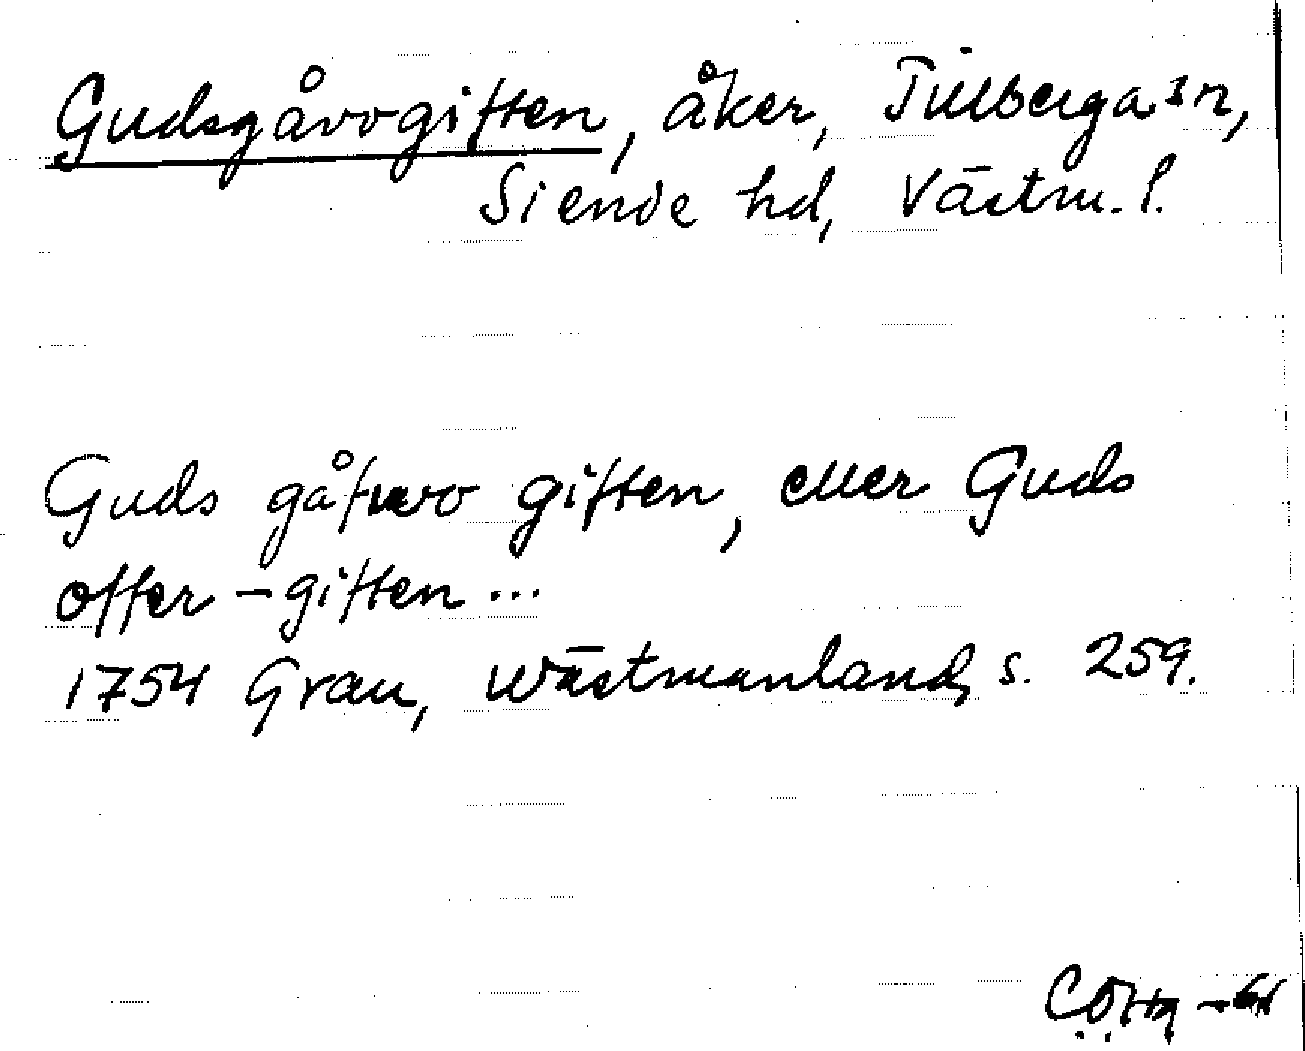 Gudsgåvogiften, åker, Tillberga sn,
Siende hd, Västm. l.
Guds gåfwo giften, eller Guds
offer-giften...
1754 Grau, Wästmanland, s. 259.